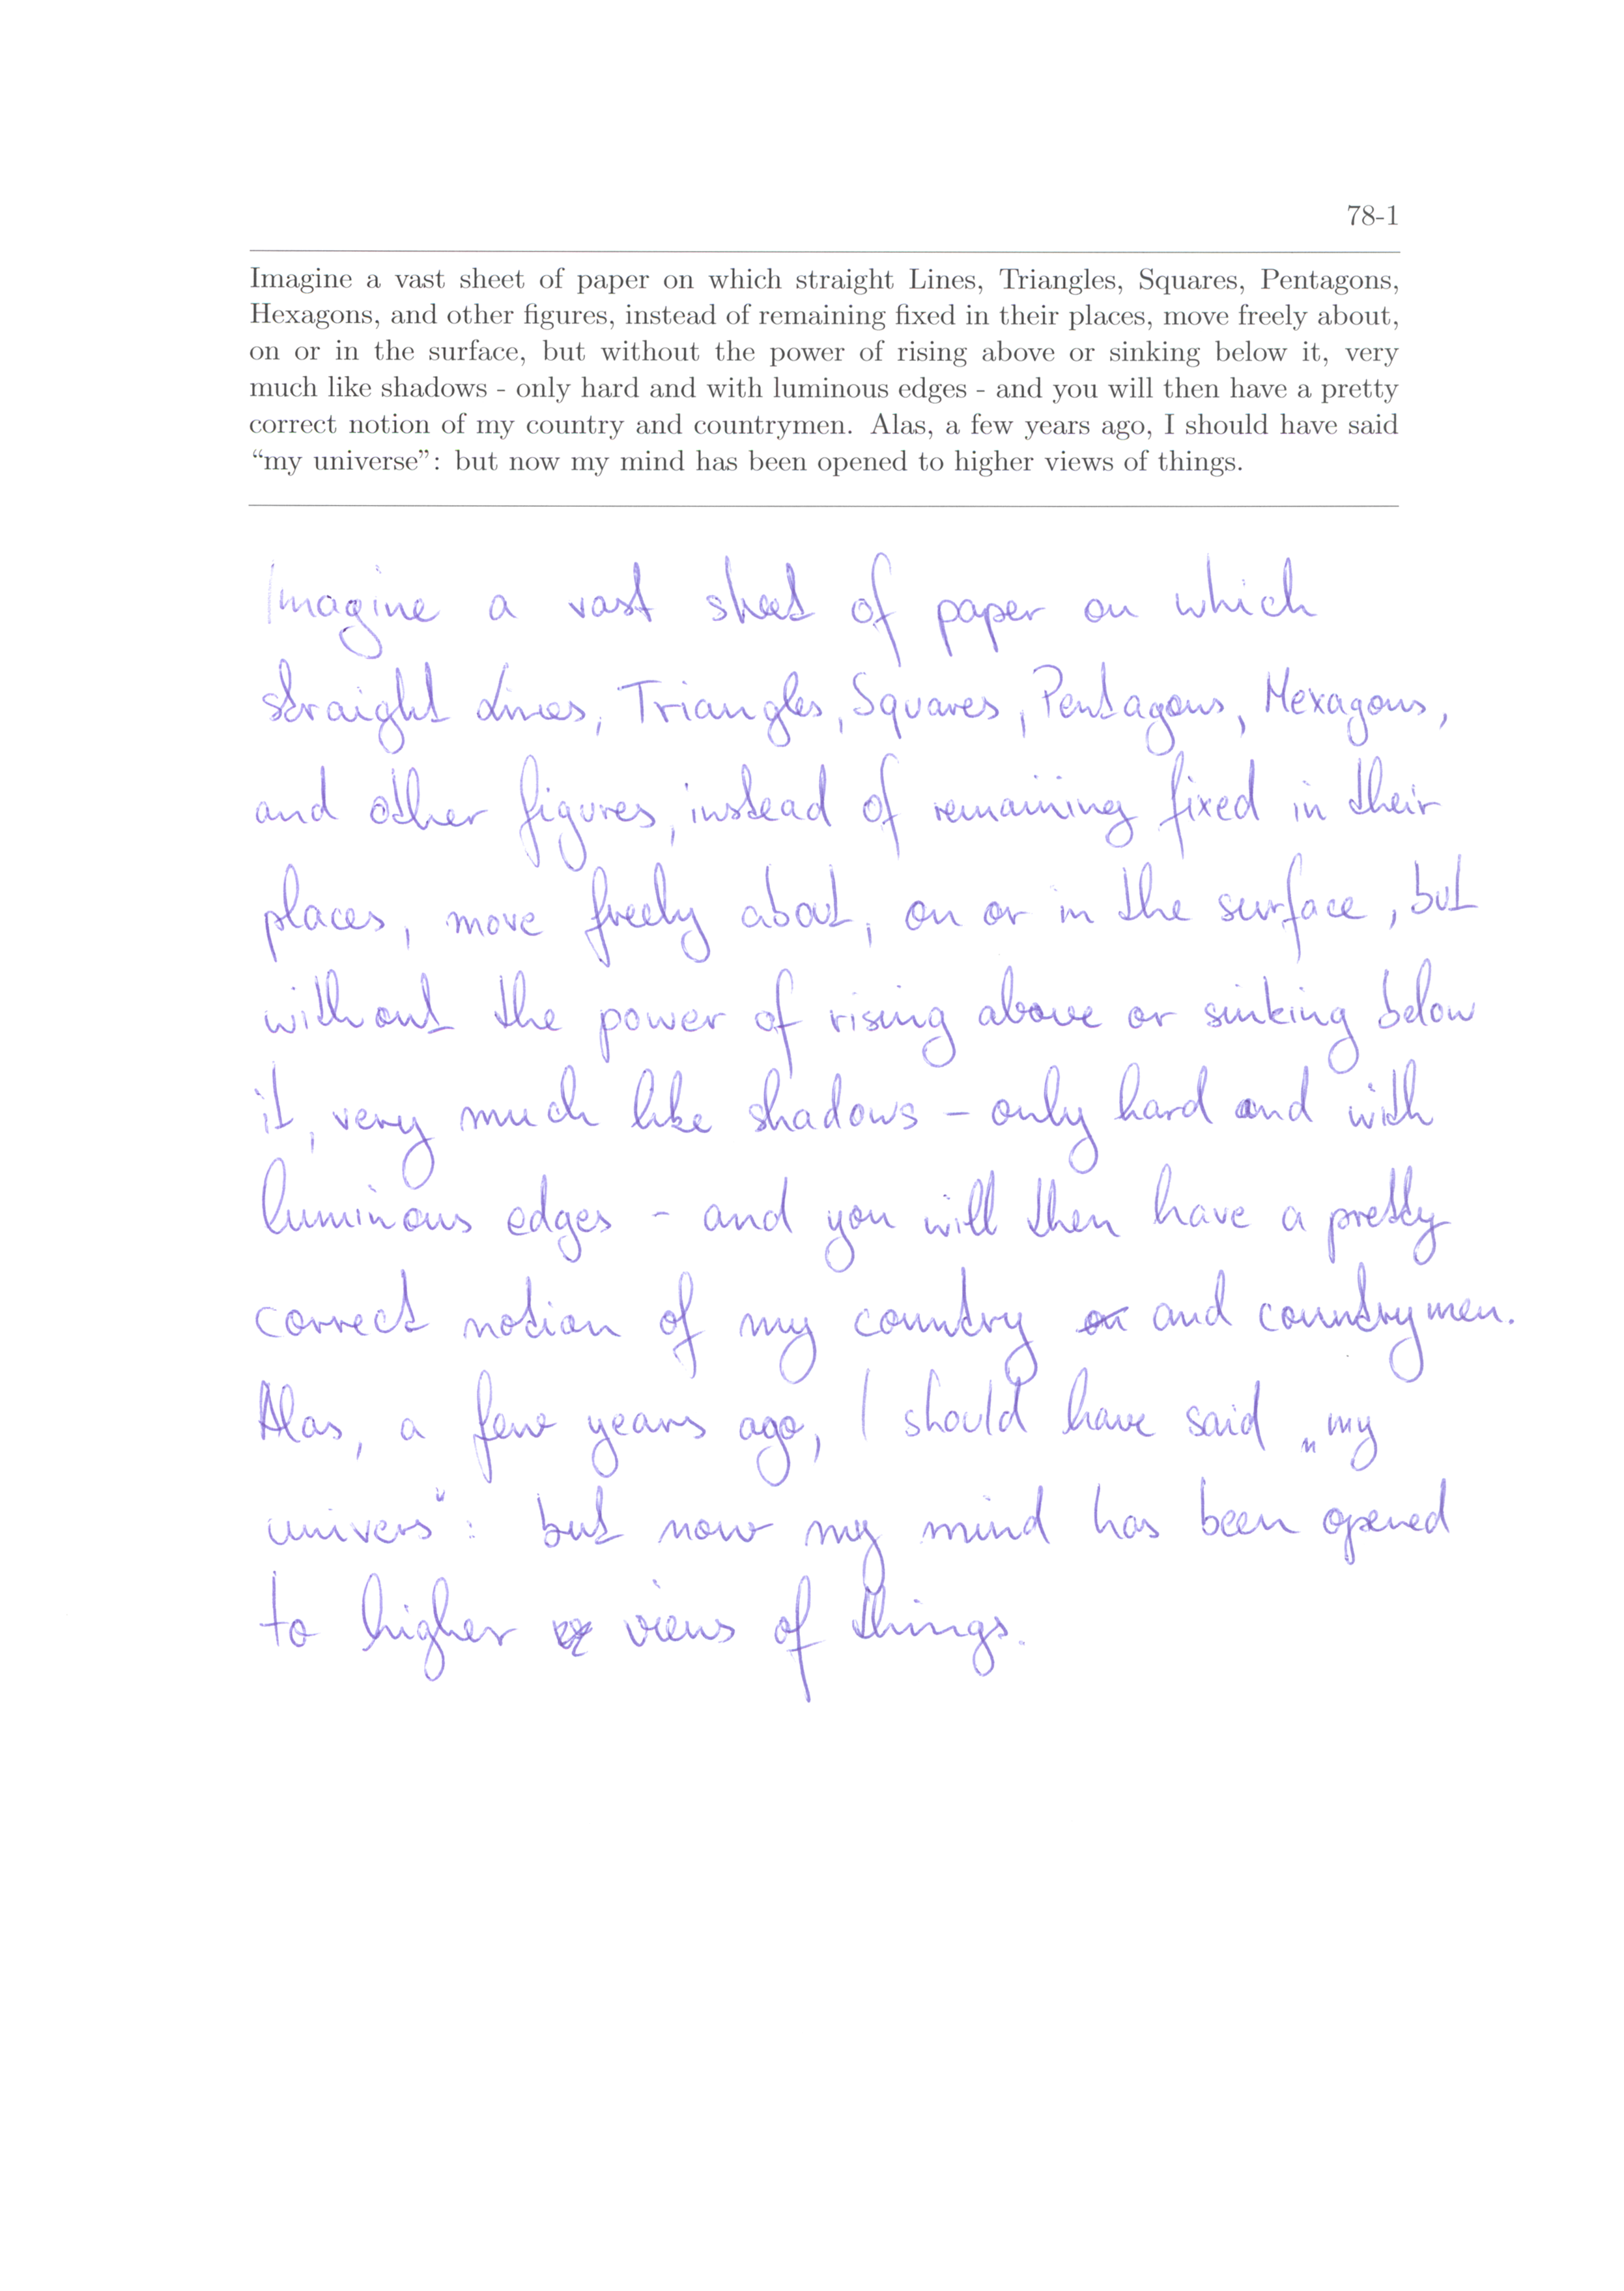 78-1
Imagine a vast sheet of paper on which straight Lines, Triangles, Squares, Pentagons,
Hexagons, and other figures, instead of remaining fixed in their places, move freely about,
on or in the surface, but without the power of rising above or sinking below it, very
much like shadows - only hard and with luminous edges - and you will then have a pretty
correct notion of my country and countrymen. Alas, a few years ago, I should have said
“my universe”: but now my mind has been opened to higher views of things.
Imagine a vast sheet of paper on which
straight Lines, Triangles, Squares, Pentagons, Hexagons,
and other figures, instead of remaining fixed in their
places, move freely about, on or in the surface, but
without the power of rising above or sinking below
it, very much like shadows – only hard and with
luminous edges - and you will then have a pretty
correct notion of my country and countrymen.
Alas, a few years ago, I should have said „my
univers“: but now my mind has been opened
to higher views of things.